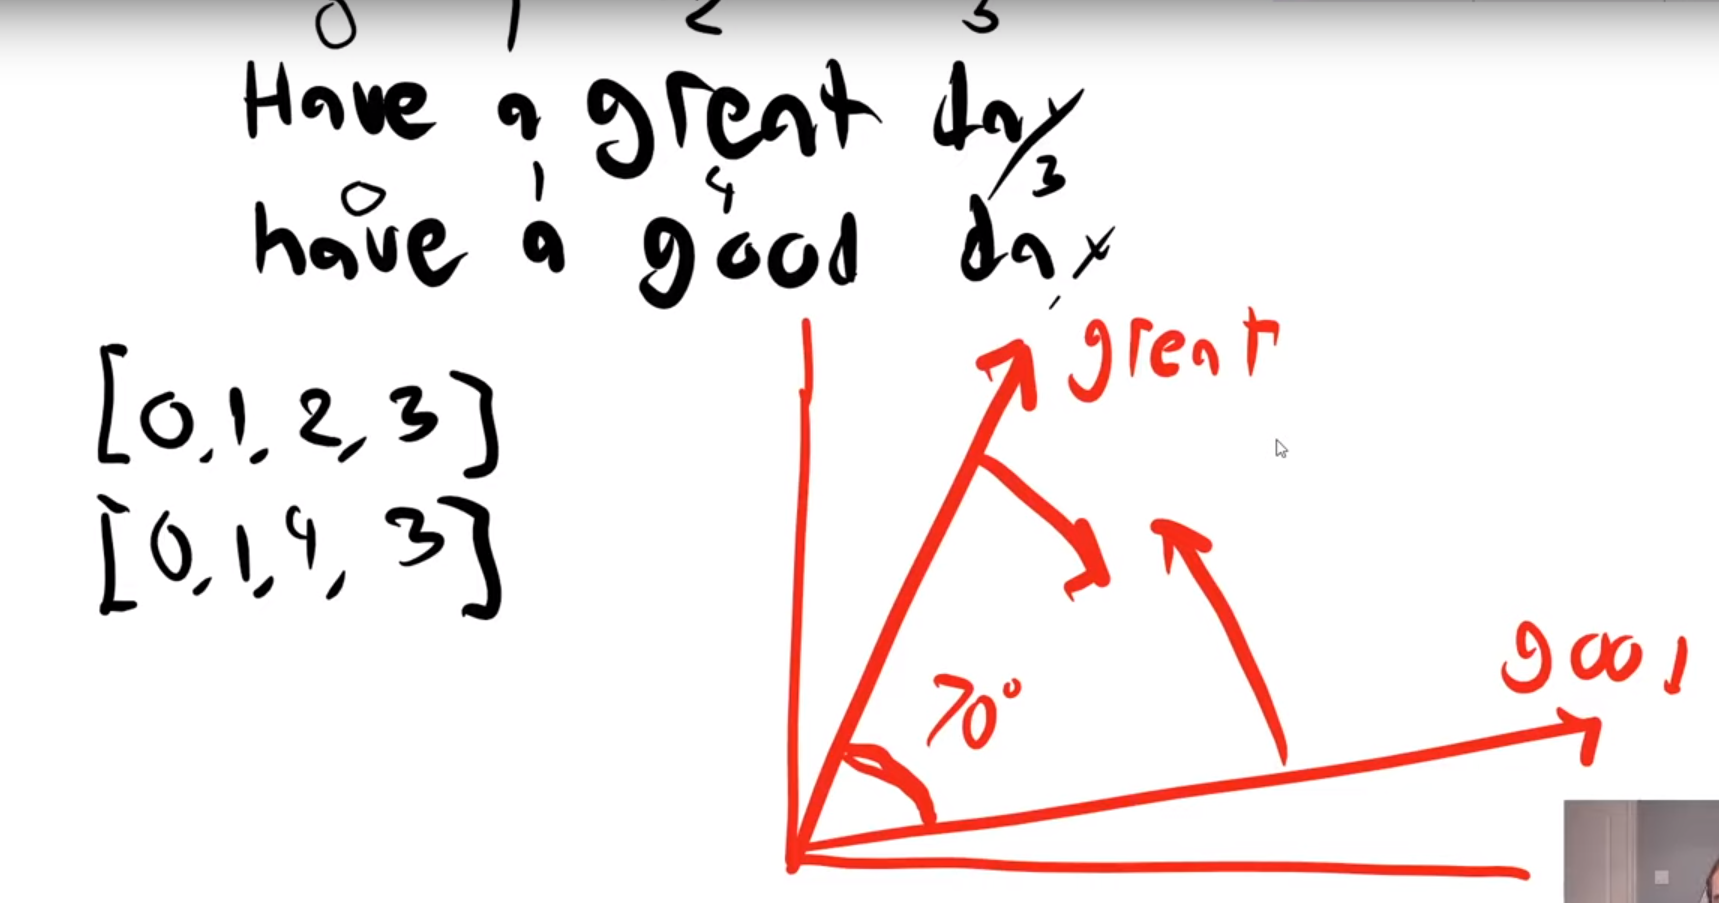 0 1 2 3
Have a great day
0 1 4 3
have a good day
[0,1,2,3]
[0,1,4,3]
great
good
70°